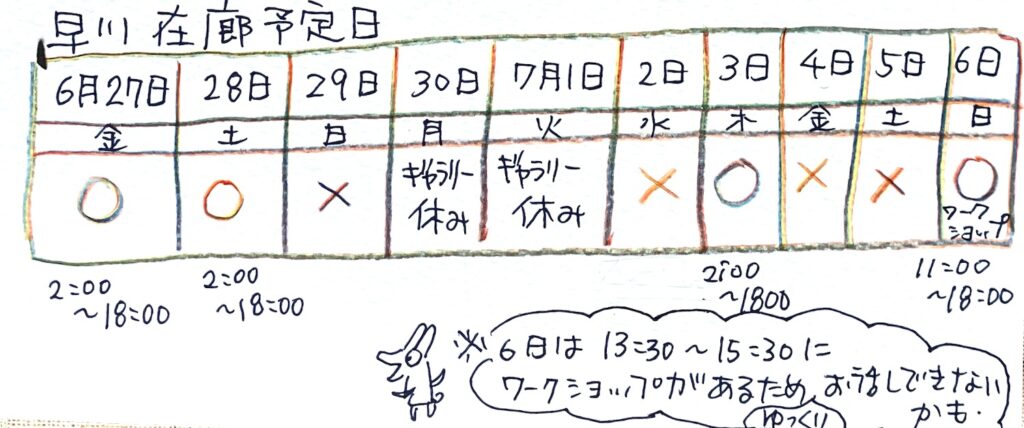 早川 在廊予定日
6月27日 28日 29日 30日 7月1日 2日 3日 4日 5日 6日
金 土 日 月 火 水 木 金 土 日
○ ○ × ギャラリー休み ギャラリー休み × ○ × × ○ ワークショップ
2:00~18:00 2:00~18:00 2:00~1800 11:00~18:00
※6日は 13:30~15:30に
ワークショップがあるため、お話しできない
かも.
ゆっくり